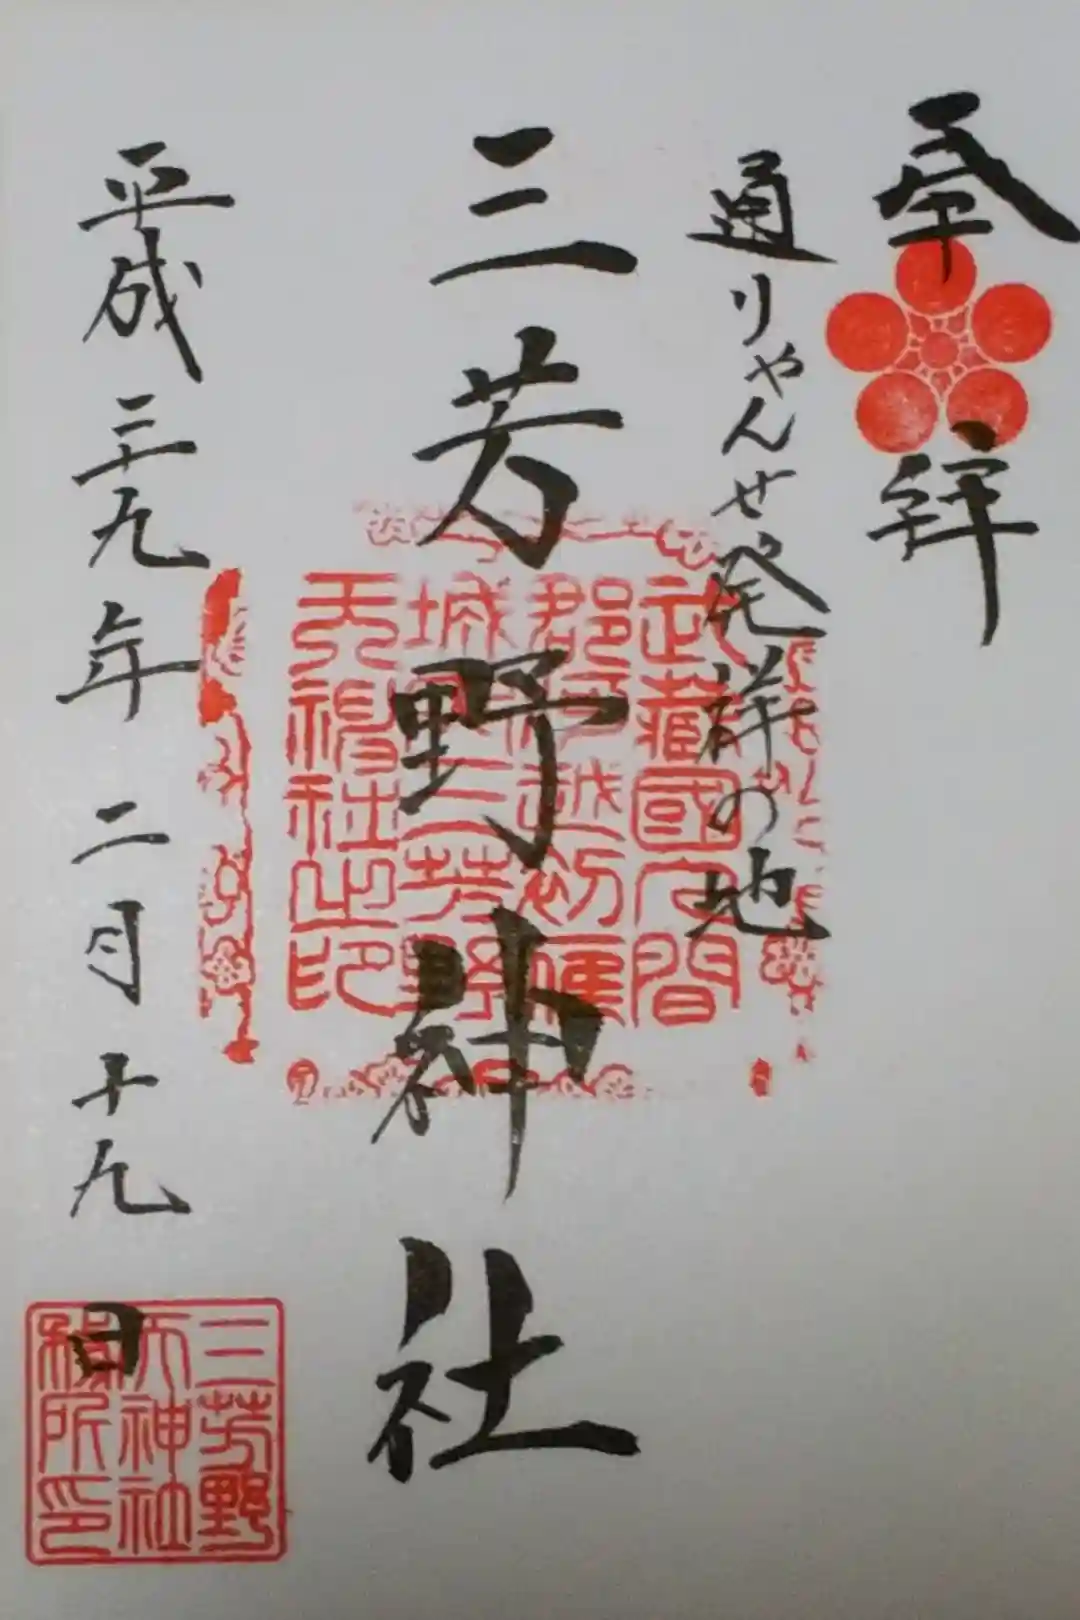 奉拝
通りゃんせ発祥の地
三芳野神社
平成二十九年二月十九日
武藏國入間
郡河越初雁
城内三芳野
天神社之印
三芳野
天神社
務所印